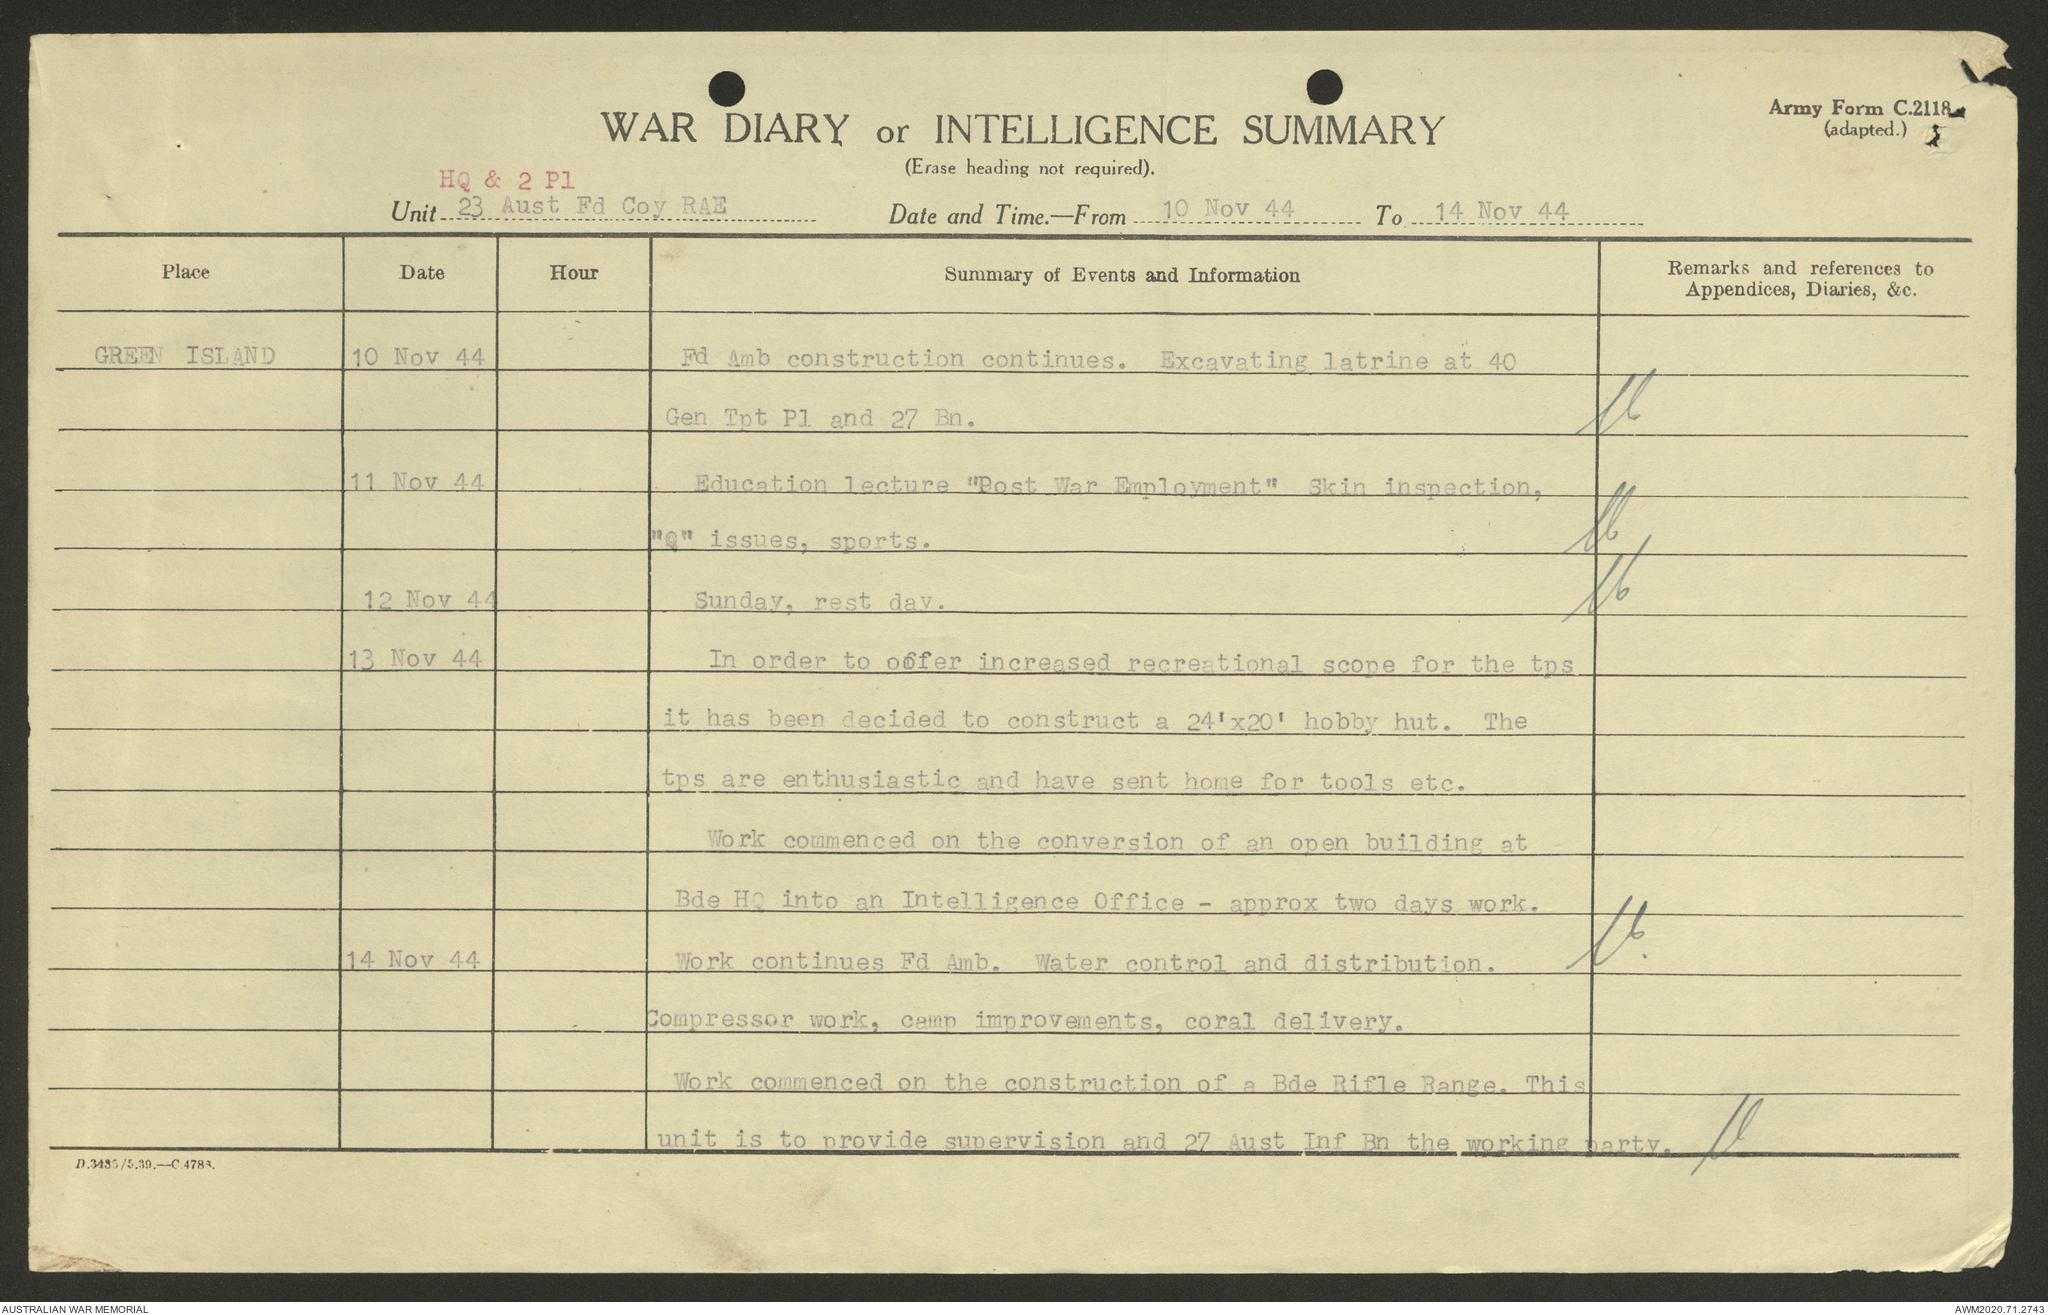 Army Form C.2118
(adapted.)
WAR DIARY or INTELLIGENCE SUMMARY
(Erase heading not required).
HQ & 2 Pl
Unit 23 Aust Fd Coy RAE Date and Time.—From 10 Nov 44 To 14 Nov 44
Place Date Hour Summary of Events and Information Remarks and references to
Appendices, Diaries, &c.
GREEN ISLAND 10 Nov 44 Fd Amb construction continues. Excavating latrine at 40
Gen Tpt Pl and 27 Bn.
11 Nov 44 Education lecture "Post War Employment" Skin inspection,
"Q" issues, sports.
12 Nov 44 Sunday, rest day.
13 Nov 44 In order to offer increased recreational scope for the tps
it has been decided to construct a 24'x20' hobby hut. The
tps are enthusiastic and have sent home for tools etc.
Work commenced on the conversion of an open building at
Bde HQ into an Intelligence Office - approx two days work.
14 Nov 44 Work continues Fd Amb. Water control and distribution.
Compressor work, camp improvements, coral delivery.
Work commenced on the construction of a Bde Rifle Range. This
unit is to provide supervision and 27 Aust Inf Bn the working party.
D.3486/5.39.—C.4788.
AUSTRALIAN WAR MEMORIAL AWM2020.71.2743